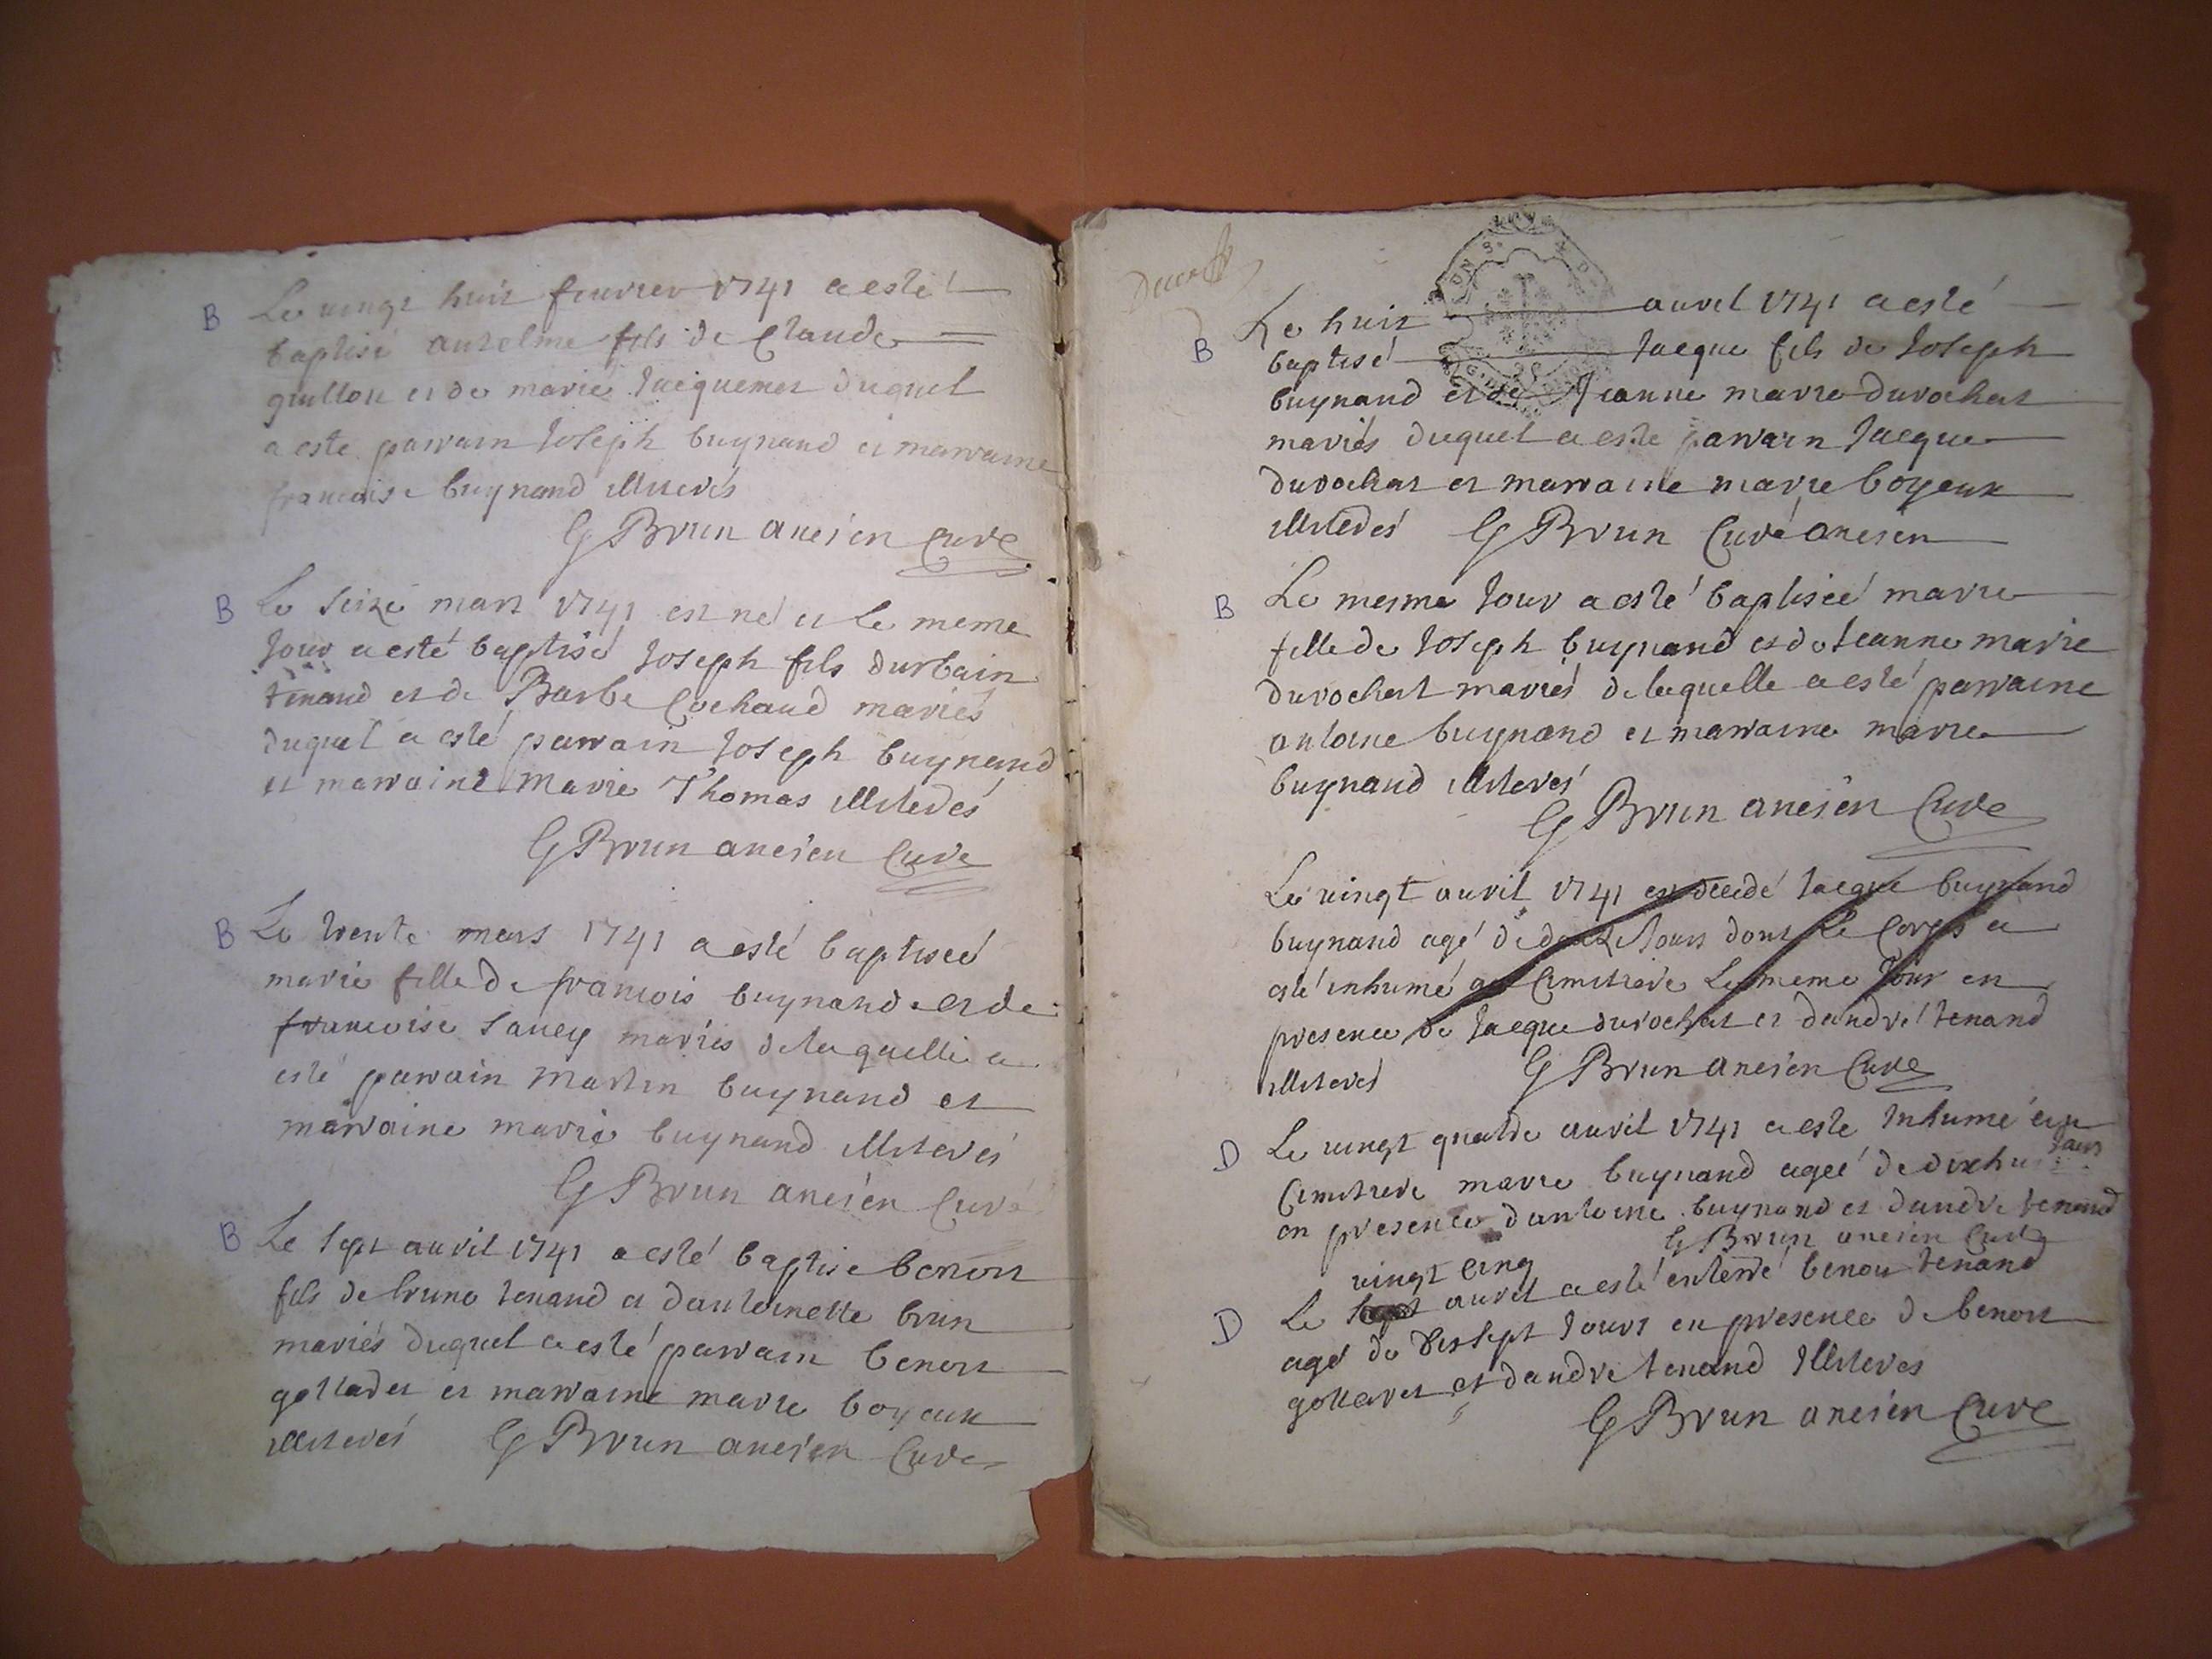 B Le vingt huit feuvrier 1741 a esté
baptisé antelme fils de Claude
guillon et de marie Jacquemet duquel
a esté parrain Joseph buynand et marraine
francoise buynand illiterés
G Brun ancien Curé
B Le seize mars 1741 est né et le meme
Jour a esté baptisé Joseph fils durbain
tenand et de Barbe Cochaud mariés
duquel a esté parrain Joseph buynand
et marraine Marie Thomas illiterés
G Brun ancien Curé
B Le trente mars 1741 a esté baptiseé
marie fille de francois buynand et de
francoise Sancy mariés de laquelle a
esté parrain Martin buynand et
marraine marie buynand illiterés
G Brun ancien Curé
B Le sept auvril 1741 a esté baptise benoit
fils de bruno tenand et dantoinette brun
mariés duquel a esté parrain benoit
et marraine marie boyeux
illiterés G Brun ancien Curé
B Le huit auvril 1741 a esté
baptisé Jacque fils de Joseph
buynand et de Jeanne marie durochat
mariés duquel a esté parrain Jacque
durochat et marraine marie boyeux
illiterés G Brun Curé ancien
B Le mesme Jour a esté baptiseé marie
fille de Joseph buynand et de Jeanne marie
durochat mariés de laquelle a esté parraine
antoine buynand et marraine marie
buynand illiterés
G Brun ancien Curé
Le vingt auvril 1741 est decedé Jacque buynand
buynand agé de douze Jours dont le Corps a
esté inhumé au Cimitiere Le meme Jour en
presence de Jacque durochat et dandré tenand
illiterés G Brun ancien Curé
D Le vingt quatre auvril 1741 a esté Inhumé au
Cimitiere marie buynand ageé de dixhuit Jours
en presence dantoine buynand et dandré tenand
G Brun ancien Curé
vingt cinq
D Le auvril a esté enterré benoit tenand
agé de dixsept Jours en presence de benoit
et dandre tenand Illiteres
G Brun ancien Curé